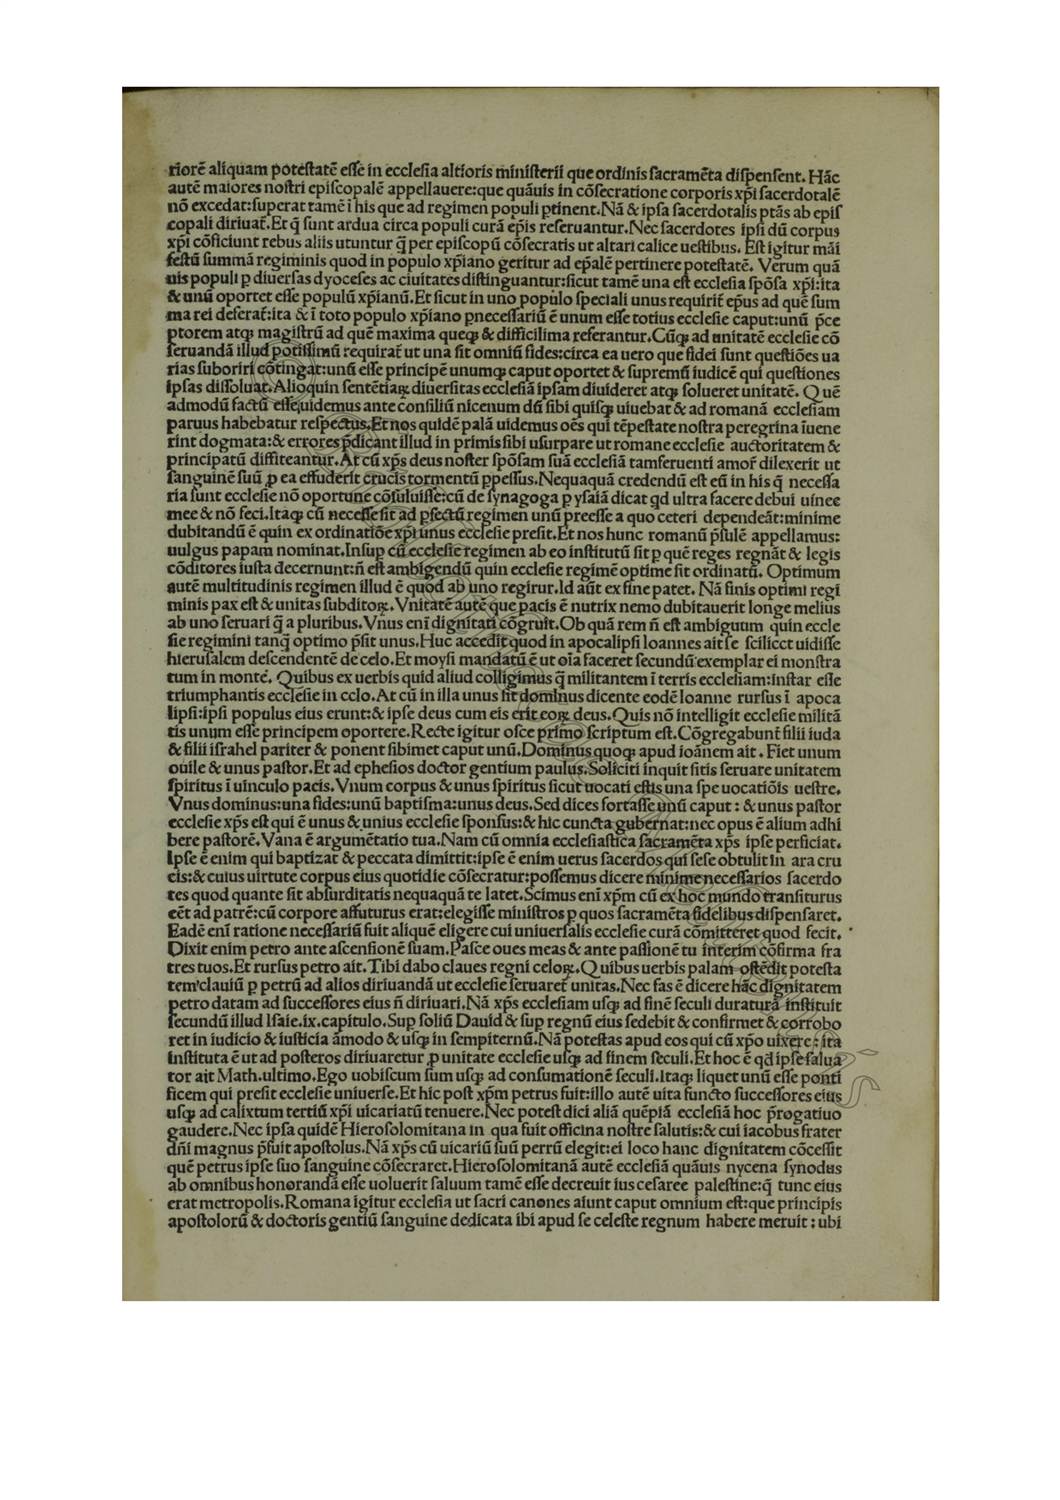 riorē aliquam potestatē esse in ecclesia altioris ministerii que ordinis sacramēta dispensent. Hāc
autē maiores nostri episcopalē appellauere:que quāuis in cōsecratione corporis xp̄i sacerdotalē
nō excedat:superat tamē ī his que ad regimen populi ꝑtinent.Nā & ipsa sacerdotalis ptās ab epis
copali diriuat᷑.Et q̄ sunt ardua circa populi curā ep̄is reseruantur.Nec sacerdotes ipsi dū corpus
xp̄i cōficiunt rebus aliis utuntur q̄ per episcopū cōsecratis ut altari calice uestibus. Est igitur māi
festū summā regiminis quod in populo xp̄iano geritur ad ep̄alē pertinere potestatē. Verum quā
uis populi ꝑ diuersas dyoceses ac ciuitates distinguantur:sicut tamē una est ecclesia spōsa xp̄i:ita
& unū oportet esse populū xp̄ianū.Et sicut in uno populo speciali unus requirit᷑ ep̄us ad quē sum
ma rei deferat᷑:ita & ī toto populo xp̄iano ꝑnecessariū ē unum esse totius ecclesie caput:unū p̄ce
ptorem atqꝫ magistrū ad quē maxima queqꝫ & difficilima referantur.Cūqꝫ ad unitatē ecclesie cō
seruandā illud potissimū requirat᷑ ut una sit omniū fides:circa ea uero que fidei sunt questiōes ua
rias suboriri cōtingat:unū esse principē unumqꝫ caput oportet & supremū iudicē qui questiones
ipsas dissoluat.Alioquin sentētiaꝝ diuersitas ecclesiā ipsam diuideret atqꝫ solueret unitatē. Quē
admodū factū esse uidemus ante consiliū nicenum dū sibi quisqꝫ uiuebat & ad romanā ecclesiam
paruus habebatur respectus.Et nos quidē palā uidemus oēs qui tēpestate nostra peregrina īuene
rint dogmata:& errores p̄dicant illud in primis sibi usurpare ut romane ecclesie auctoritatem &
principatū diffiteantur.At cū xp̄s deus noster spōsam suā ecclesiā tamferuenti amor᷑ dilexerit ut
sanguinē suū ꝓ ea effuderit crucis tormentū ꝑpessus.Nequaquā credendū est eū in his q̄ necessa
ria sunt ecclesie nō oportune cōsuluisse:cū de synagoga ꝑ ysaiā dicat qd ultra facere debui uinee
mee & nō feci.Itaqꝫ cū necesse sit ad ꝑfectū regimen unū preesse a quo ceteri dependeāt:minime
dubitandū ē quin ex ordinatiōe xp̄i unus ecclesie presit.Et nos hunc romanū p̄sulē appellamus:
uulgus papam nominat.Insuꝑ cū ecclesie regimen ab eo institutū sit ꝑ quē reges regnāt & legis
cōditores iusta decernunt:n̄ est ambigendū quin ecclesie regimē optime sit ordinatū. Optimum
autē multitudinis regimen illud ē quod ab uno regirur.Id aūt ex fine patet. Nā finis optimi regi
minis pax est & unitas subditoꝝ.Vnitatē autē que pacis ē nutrix nemo dubitauerit longe melius
ab uno seruari q̄ a pluribus.Vnus enī dignitati cōgruit.Ob quā rem n̄ est ambiguum quin eccle
sie regimini tanq̄ optimo p̄sit unus.Huc accedit quod in apocalipsi Ioannes ait se scilicet uidisse
hierusalem descendentē de celo.Et moysi mandatū ē ut oīa faceret secundū exemplar ei monstra
tum in monte. Quibus ex uerbis quid aliud colligimus q̄ militantem ī terris ecclesiam:instar esse
triumphantis ecclesie in cclo.At cū in illa unus sit dominus dicente eodē Ioanne rursus ī apoca
lipsi:ipsi populus eius erunt:& ipse deus cum eis erit eoꝝ deus.Quis nō intelligit ecclesie militā
tis unum esse principem oportere.Recte igitur osee primo scriptum est.Cōgregabunt᷑ filii iuda
& filii israhel pariter & ponent sibimet caput unū.Dominus quoqꝫ apud ioānem ait. Fiet unum
ouile & unus pastor.Et ad ephesios doctor gentium paulus.Soliciti inquit sitis seruare unitatem
spiritus ī uinculo pacis.Vnum corpus & unus spiritus sicut uocati estis una spe uocatiōis uestre.
Vnus dominus:una fides:unū baptisma:unus deus.Sed dices fortasse unū caput : & unus pastor
ecclesie xp̄s est qui ē unus & unius ecclesie sponsus:& hic cuncta gubernat:nec opus ē alium adhi
bere pastorē.Vana ē argumētatio tua.Nam cū omnia ecclesiastica sacramēta xp̄s ipse perficiat.
Ipse ē enim qui baptizat & peccata dimittit:ipse ē enim uerus sacerdos qui sese obtulit in ara cru
cis:& cuius uirtute corpus eius quotidie cōsecratur:possemus dicere minime necessarios sacerdo
tes quod quante sit absurditatis nequaquā te latet.Scimus enī xp̄m cū ex hoc mundo transiturus
eēt ad patrē:cū corpore affuturus erat:elegisse ministros ꝑ quos sacramēta fidelibus dispensaret.
Eadē enī ratione necessariū fuit aliquē eligere cui uniuersalis ecclesie curā cōmitteret quod fecit.
Dixit enim petro ante ascensionē suam.Pasce oues meas & ante passionē tu interim cōfirma fra
tres tuos.Et rursus petro ait.Tibi dabo claues regni celoꝝ.Quibus uerbis palam ostēdit potesta
tem clauiū ꝑ petrū ad alios diriuandā ut ecclesie seruaret᷑ unitas.Nec fas ē dicere hāc dignitatem
petro datam ad successores eius n̄ diriuari.Nā xp̄s ecclesiam usqꝫ ad finē seculi duraturā instituit
secundū illud Isaie.ix.capitulo.Suꝑ soliū Dauid & suꝑ regnū eius sedebit & confirmet & corrobo
ret in iudicio & iusticia āmodo & usqꝫ in sempiternū.Nā potestas apud eos qui cū xp̄o uixere : ita
instituta ē ut ad posteros diriuaretur ꝓ unitate ecclesie usqꝫ ad finem seculi.Et hoc ē qd ipse salua
tor ait Math.ultimo.Ego uobiscum sum usqꝫ ad consumationē seculi.Itaqꝫ liquet unū esse ponti
ficem qui presit ecclesie uniuerse.Et hic post xp̄m petrus fuit:illo autē uita functo successores eius
usqꝫ ad calixtum tertiū xp̄i uicariatū tenuere.Nec potest dici aliā quēpiā ecclesiā hoc p̄rogatiuo
gaudere.Nec ipsa quidē Hierosolomitana in qua fuit officina nostre salutis:& cui iacobus frater
dn̄i magnus p̄fuit apostolus.Nā xp̄s cū uicariū suū perrū elegit:ei loco hanc dignitatem cōcessit
quē petrus ipse suo sanguine cōsecraret.Hierosolomitanā autē ecclesiā quāuis nycena synodus
ab omnibus honorandā esse uoluerit saluum tamē esse decreuit ius cesaree palestine:q̄ tunc eius
erat metropolis.Romana igitur ecclesia ut sacri canones aiunt caput omnium est:que principis
apostolorū & doctoris gentiū sanguine dedicata ibi apud se celeste regnum habere meruit : ubi